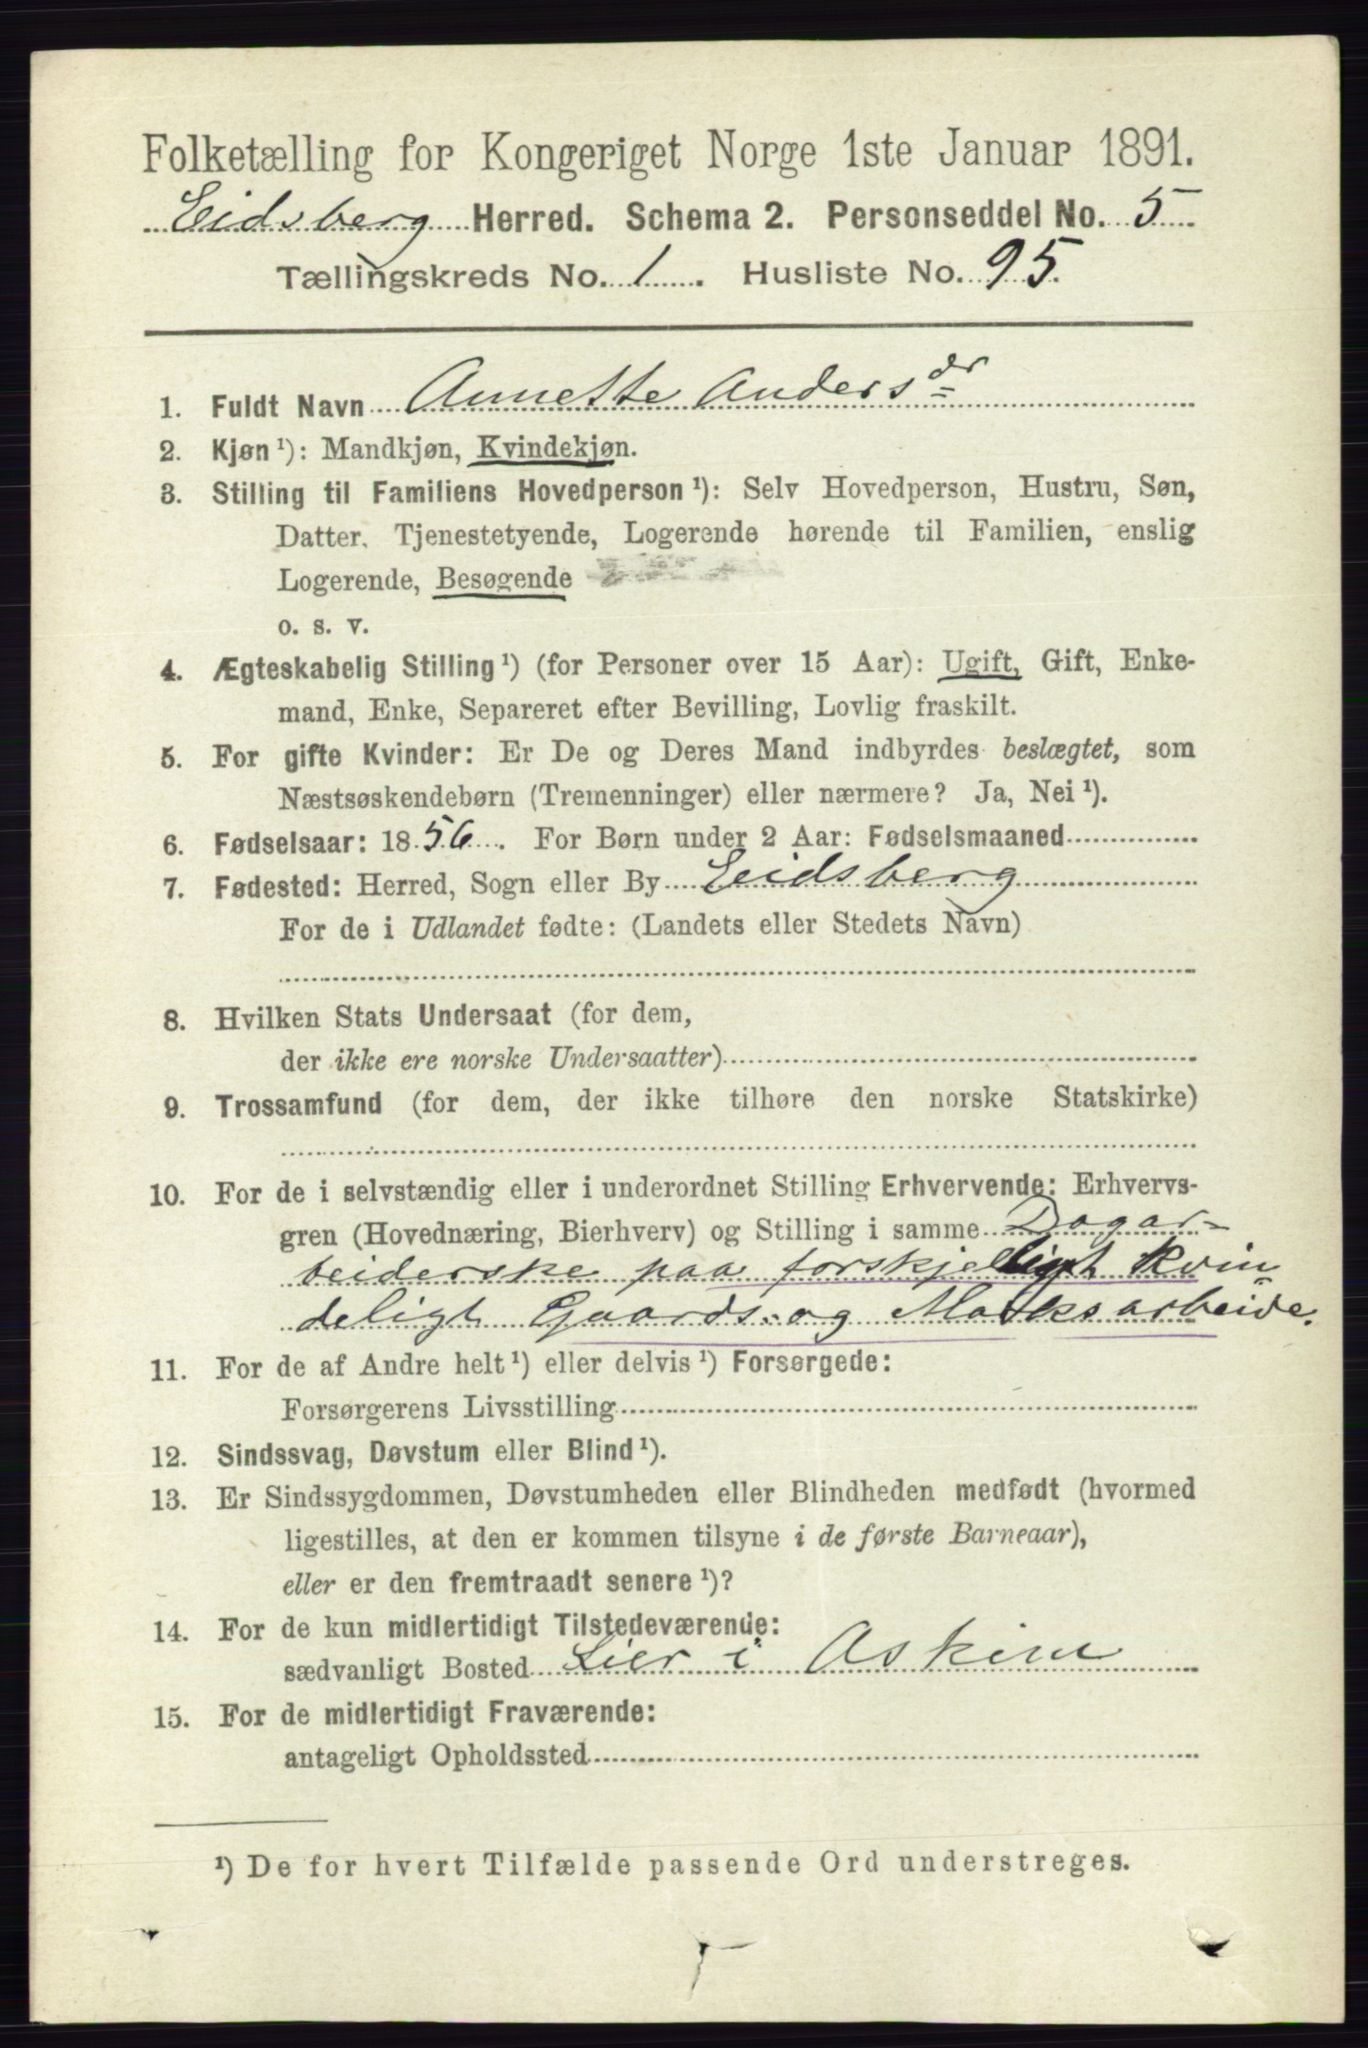 Folketælling for Kongeriget Norge 1ste Januar 1891.
Eidsberg Herred. Schema 2. Personseddel No. 5
Tællingskreds No. 1. Husliste No. 95.
1. Fuldt Navn Annette Andersdr
2. Kjøn ¹): Mandkjøn, Kvindekjøn.
3. Stilling til Familiens Hovedperson ¹): Selv Hovedperson, Hustru, Søn,
Datter, Tjenestetyende, Logerende hørende til Familien, enslig
Logerende, Besøgende
o. s. v.
4. Ægteskabelig Stilling ¹) (for Personer over 15 Aar): Ugift, Gift, Enke-
mand, Enke, Separeret efter Bevilling, Lovlig fraskilt.
5. For gifte Kvinder: Er De og Deres Mand indbyrdes beslægtet, som
Næstsøskendebørn (Tremenninger) eller nærmere? Ja, Nei ¹).
6. Fødselsaar: 1856. For Børn under 2 Aar: Fødselsmaaned
7. Fødested: Herred, Sogn eller By Eidsberg
For de i Udlandet fødte: (Landets eller Stedets Navn)
8. Hvilken Stats Undersaat (for dem,
der ikke ere norske Undersaatter)
9. Trossamfund (for dem, der ikke tilhøre den norske Statskirke)
10. For de i selvstændig eller i underordnet Stilling Erhvervende: Erhvervs-
gren (Hovednæring, Bierhverv) og Stilling i samme Dagar-
beiderske paa forskjelligt kvin=
deligt Gaards- og Marksarbeide.
11. For de af Andre helt ¹) eller delvis ¹) Forsørgede:
Forsørgerens Livsstilling
12. Sindssvag, Døvstum eller Blind ¹).
13. Er Sindssygdommen, Døvstumheden eller Blindheden medfødt (hvormed
ligestilles, at den er kommen tilsyne i de første Barneaar),
eller er den fremtraadt senere ¹)?
14. For de kun midlertidigt Tilstedeværende:
sædvanligt Bosted Lier i Askim
15. For de midlertidigt Fraværende:
antageligt Opholdssted
¹) De for hvert Tilfælde passende Ord understreges.